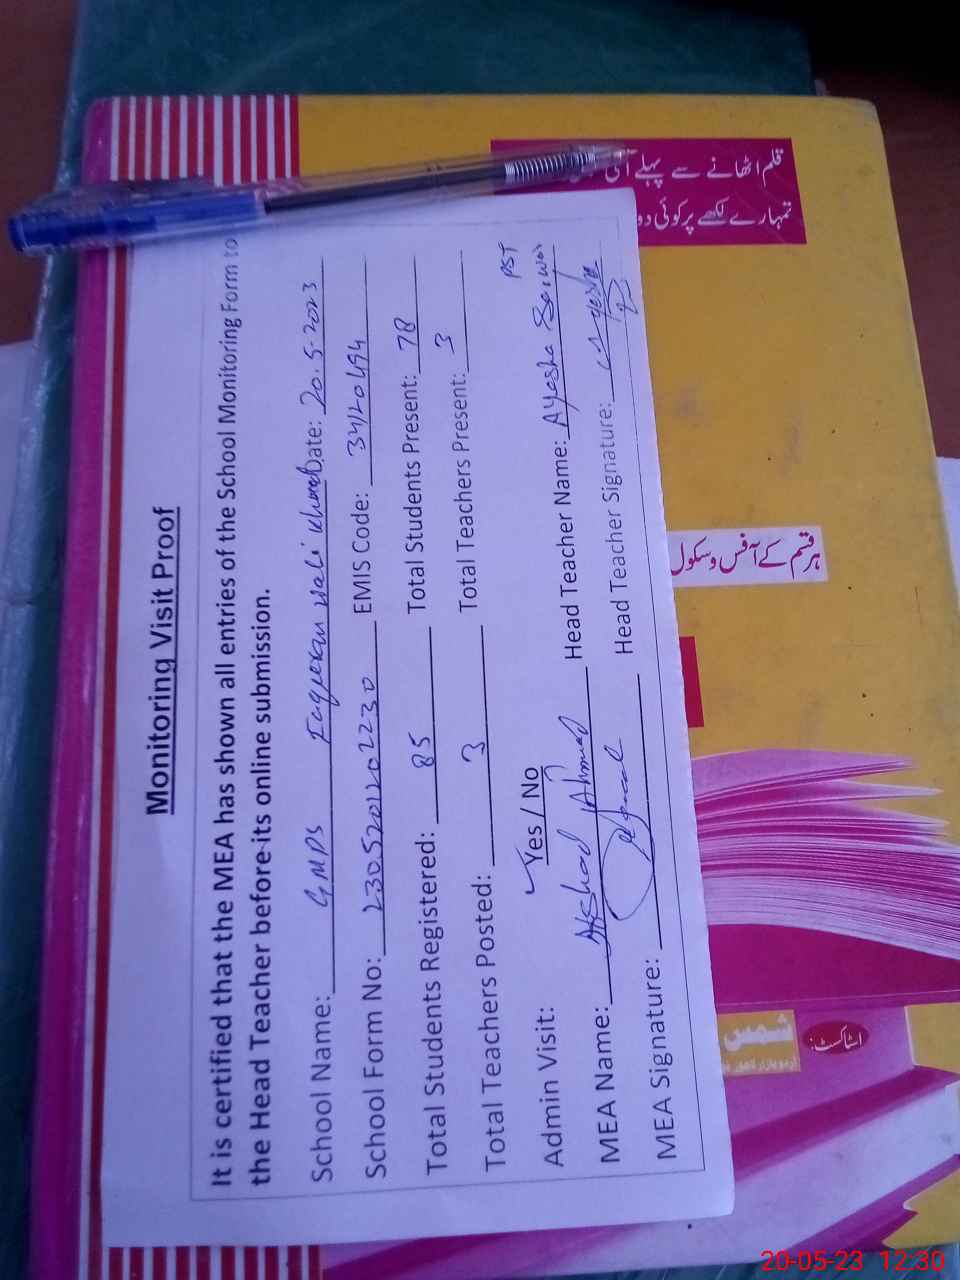 Monitoring Visit Proof
It is certified that the MEA has shown all entries of the School Monitoring Form to
the Head Teacher before its online submission.
School Name: GMPS Faqeeran wali khurd Date: 20.5.2023
School Form No: 2305201202230 EMIS Code: 34120494
Total Students Registered: 85 Total Students Present: 78
Total Teachers Posted: 3 Total Teachers Present: 3
Admin Visit: Yes / No PST
MEA Name: Arshad Ahmad Head Teacher Name: Ayesha Sarwar
MEA Signature: Head Teacher Signature: Ayesha
قلم اٹھانے سے پہلے
تمہارے لکھے پر کوئی
ہر قسم کے آفس و سکول
شمس
اسٹاکسٹ:
20-05-23 12:30